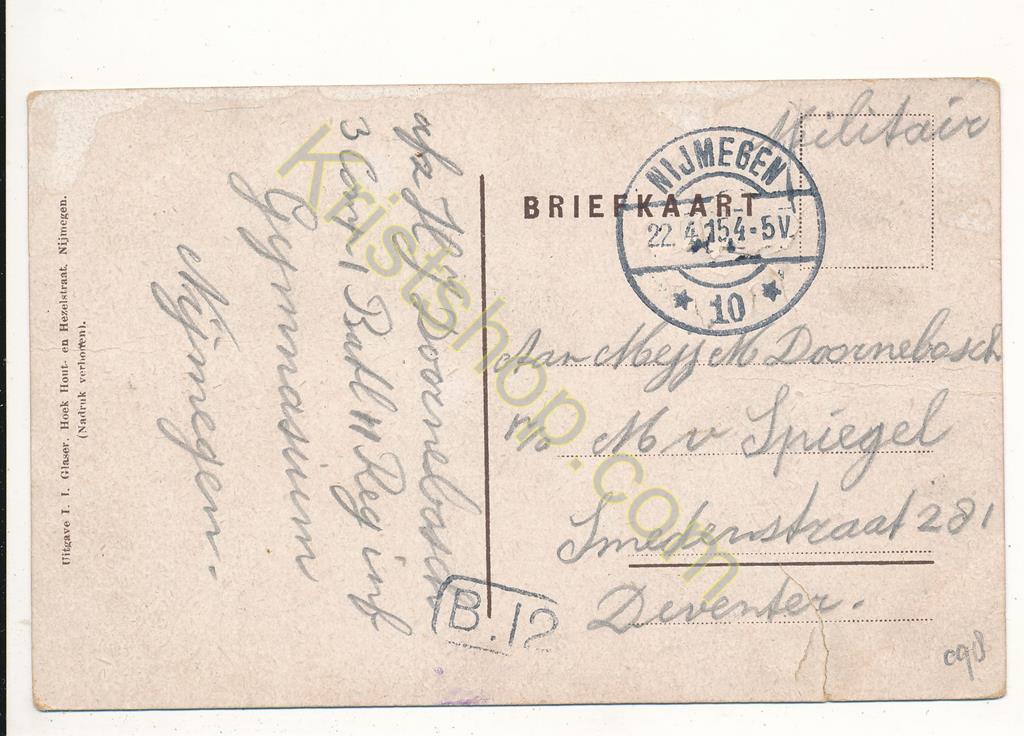 Militair
BRIEFKAART
NIJMEGEN
22.4.15 4-5V.
10
Aan Mejj M Doornebosch
p/a M v Spiegel
Smedenstraat 281
Deventer.
afz H Doornebosch
3 Comp 1 Batl 11 Reg inf
Gymnasium
Nijmegen.
B.12
Uitgave I. I. Glaser, Hoek Hout- en Hezelstraat, Nijmegen.
(Nadruk verboden).
Kristshop.com